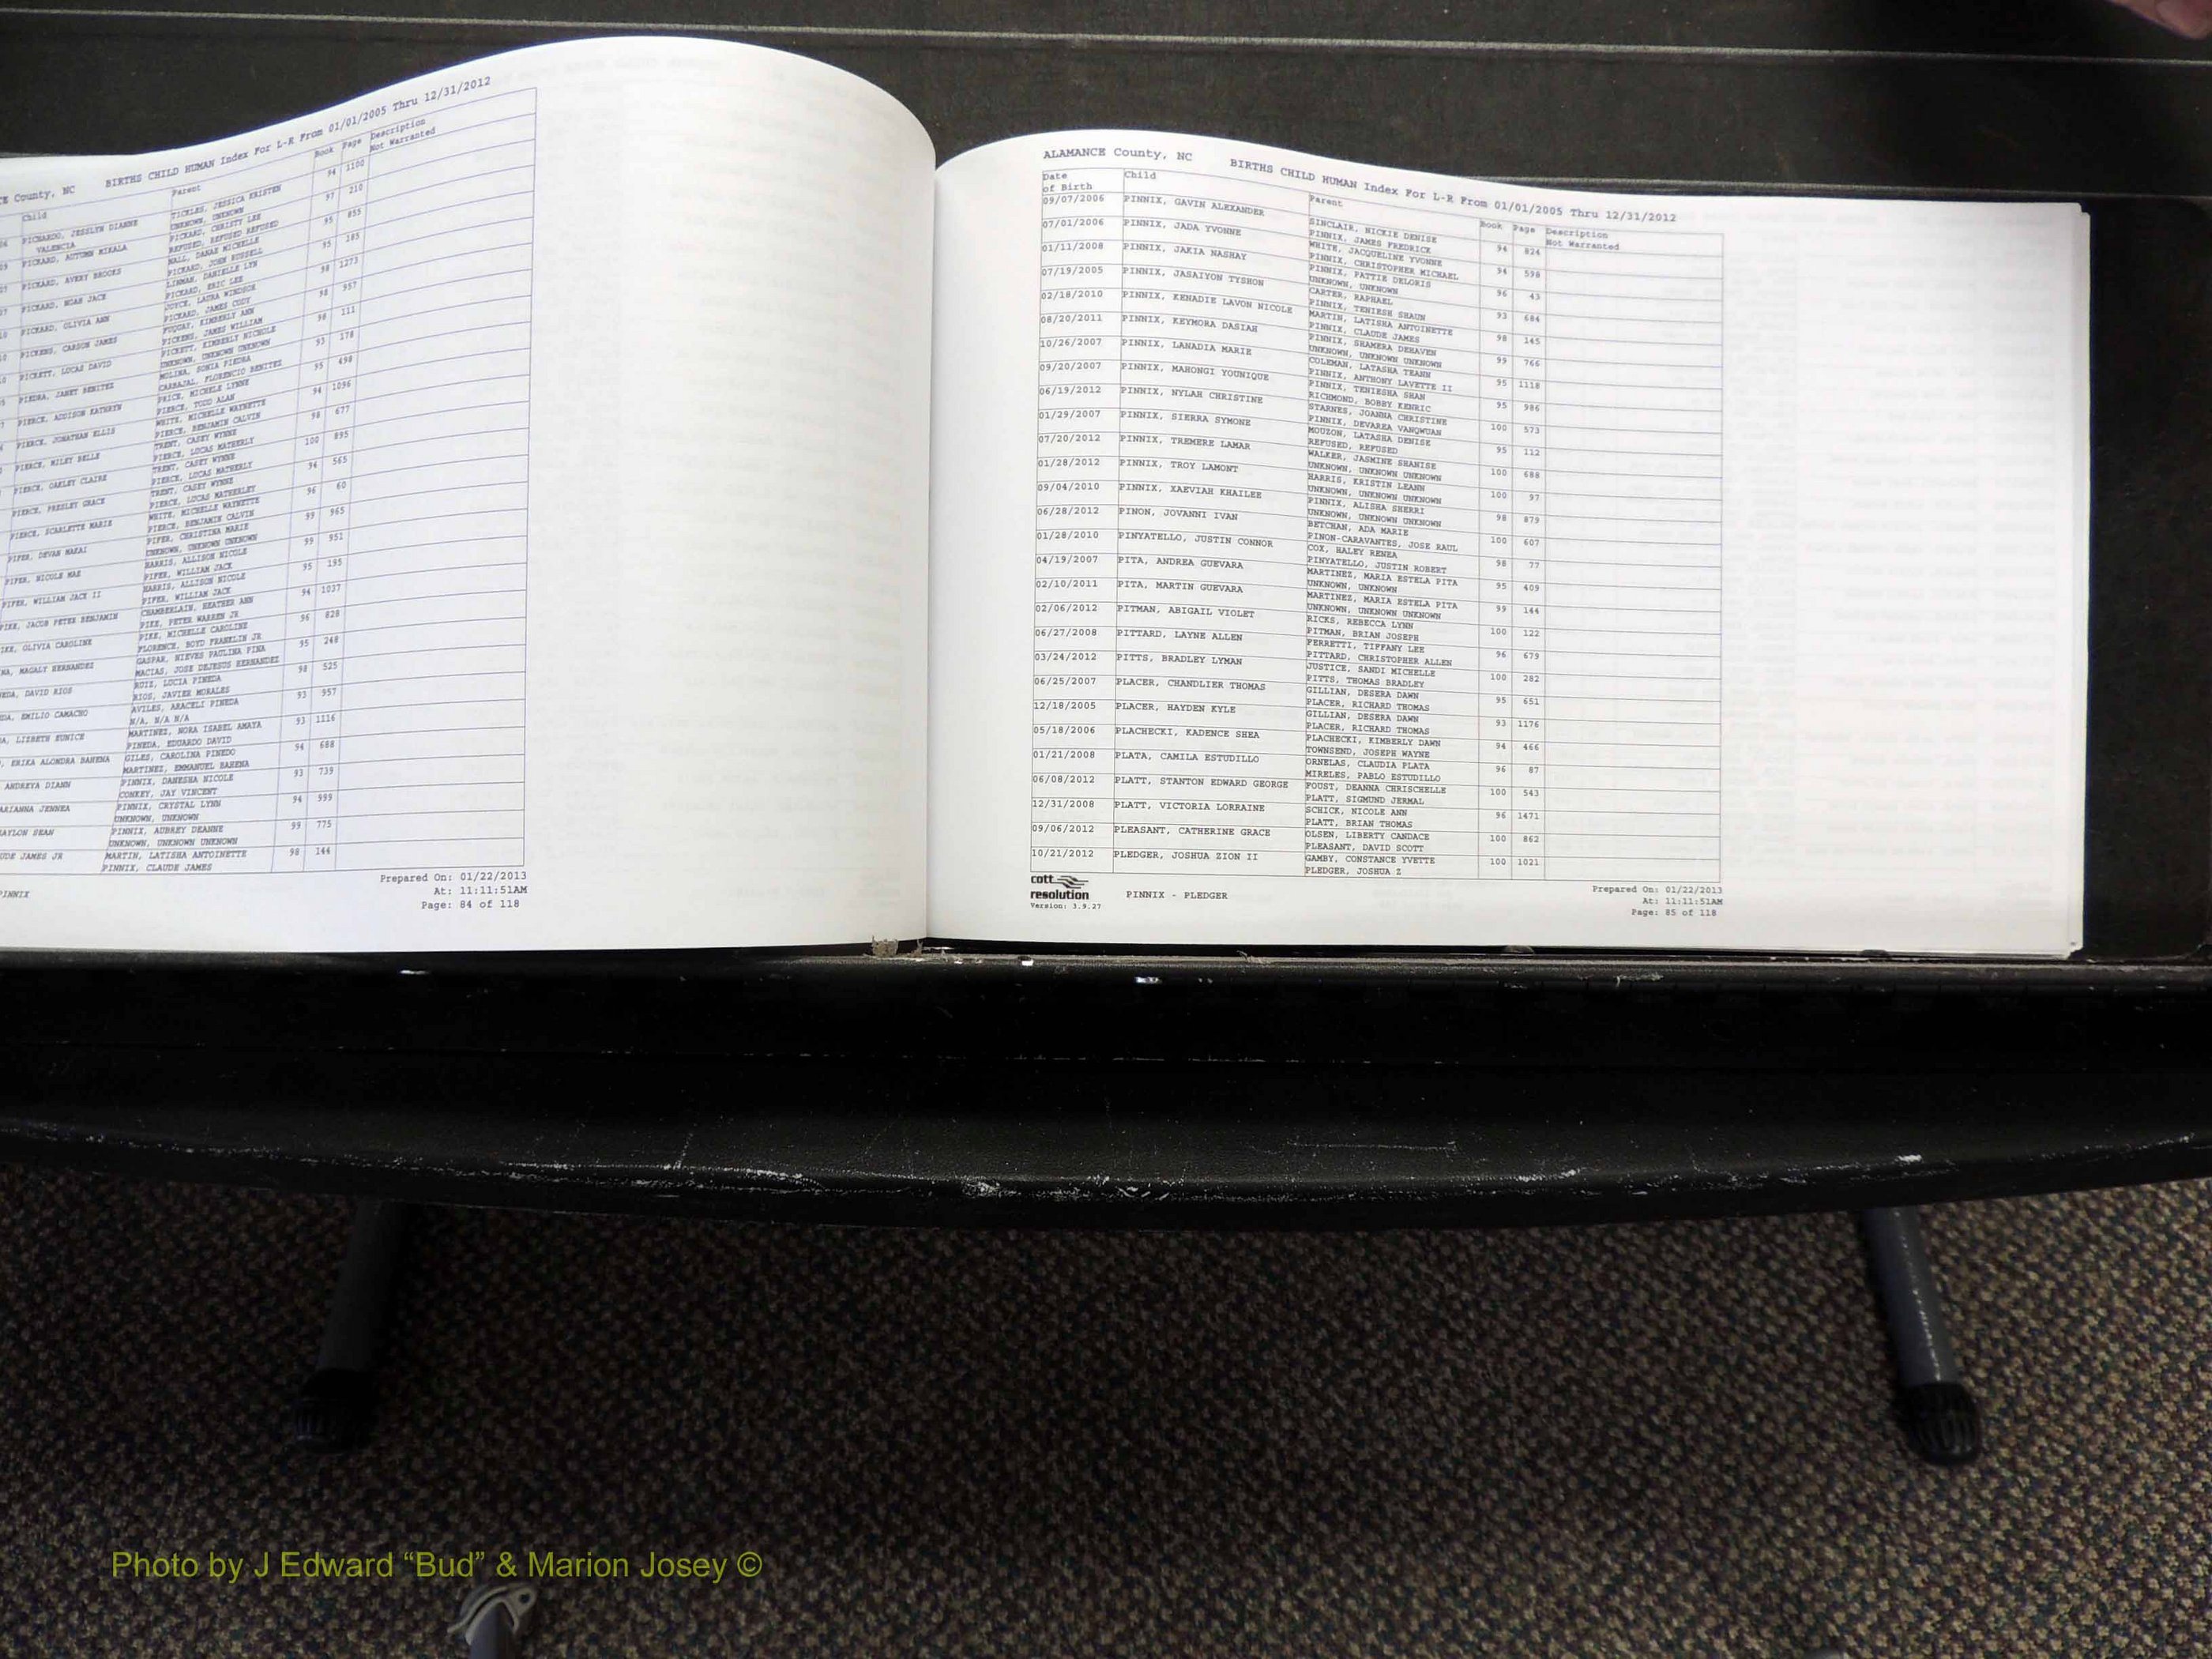 CE County, NC BIRTHS CHILD HUMAN Index For L-R From 01/01/2005 Thru 12/31/2012
Child Parent Book Page Description
Not Warranted
PICHARDO, JESSLYN DIANNE TICKLES, JESSICA KRISTEN 94 1100
VALENCIA UNKNOWN, UNKNOWN
PICKARD, AUTUMN MIKALA PICKARD, CHRISTY LEE 97 210
REFUSED, REFUSED REFUSED
PICKARD, AVERY BROOKS HALL, DANAE MICHELLE 95 855
PICKARD, JOHN RUSSELL
PICKARD, NOAH JACK LINMAN, DANIELLE LYN 95 185
PICKARD, ERIC LEE
PICKARD, OLIVIA ANN JOYCE, LAURA WINDSOR 98 1273
PICKARD, JAMES CODY
PICKENS, CARSON JAMES FUQUAY, KIMBERLY ANN 98 957
PICKENS, JAMES WILLIAM
PICKETT, LUCAS DAVID PICKETT, KIMBERLY NICHOLE 98 111
UNKNOWN, UNKNOWN UNKNOWN
PIEDRA, JANET BENITEZ MOLINA, SONIA PIEDRA 93 178
CARBAJAL, FLORENCIO BENITEZ
PIERCE, ADDISON KATHRYN PRICE, MICHELE LYNNE 95 498
PIERCE, TODD ALAN
PIERCE, JONATHAN ELLIS WHITE, MICHELLE WAYNETTE 94 1096
PIERCE, BENJAMIN CALVIN
PIERCE, MILEY BELLE TRENT, CASEY WYNNE 98 677
PIERCE, LUCAS MATHERLY
PIERCE, OAKLEY CLAIRE TRENT, CASEY WYNNE 100 895
PIERCE, LUCAS MATHERLY
PIERCE, PRESLEY GRACE TRENT, CASEY WYNNE 94 565
PIERCE, LUCAS MATHERLEY
PIERCE, SCARLETTE MARIE WHITE, MICHELLE WAYNETTE 96 60
PIERCE, BENJAMIN CALVIN
PIFER, DEVAN MAKAI PIFER, CHRISTINA MARIE 99 965
UNKNOWN, UNKNOWN UNKNOWN
PIFER, NICOLE MAE HARRIS, ALLISON NICOLE 99 951
PIFER, WILLIAM JACK
PIFER, WILLIAM JACK II HARRIS, ALLISON NICOLE 95 195
PIFER, WILLIAM JACK
PIKE, JACOB PETER BENJAMIN CHAMBERLAIN, HEATHER ANN 94 1037
PIKE, PETER WARREN JR
IKE, OLIVIA CAROLINE PIKE, MICHELLE CAROLINE 96 828
FLORENCE, BOYD FRANKLIN JR
NA, MAGALY HERNANDEZ GASPAR, NIEVES PAULINA PINA 95 248
MACIAS, JOSE DEJESUS HERNANDEZ
EDA, DAVID RIOS RUIZ, LUCIA PINEDA 98 525
RIOS, JAVIER MORALES
DA, EMILIO CAMACHO AVILES, ARACELI PINEDA 93 957
N/A, N/A N/A
A, LIZBETH EUNICE MARTINEZ, NORA ISABEL AMAYA 93 1116
PINEDA, EDUARDO DAVID
, ERIKA ALONDRA BAHENA GILES, CAROLINA PINEDO 94 688
MARTINEZ, EMMANUEL BAHENA
ANDREYA DIANN PINNIX, DANESHA NICOLE 93 739
CONKEY, JAY VINCENT
ARIANNA JENNEA PINNIX, CRYSTAL LYNN 94 999
UNKNOWN, UNKNOWN
AYLON SEAN PINNIX, AUBREY DEANNE 99 775
UNKNOWN, UNKNOWN UNKNOWN
UDE JAMES JR MARTIN, LATISHA ANTOINETTE 98 144
PINNIX, CLAUDE JAMES
PINNIX
Prepared On: 01/22/2013
At: 11:11:51AM
Page: 84 of 118
ALAMANCE County, NC BIRTHS CHILD HUMAN Index For L-R From 01/01/2005 Thru 12/31/2012
Date of Birth Child Parent Book Page Description
Not Warranted
09/07/2006 PINNIX, GAVIN ALEXANDER SINCLAIR, NICKIE DENISE 94 824
PINNIX, JAMES FREDRICK
07/01/2006 PINNIX, JADA YVONNE WHITE, JACQUELINE YVONNE 94 598
PINNIX, CHRISTOPHER MICHAEL
01/11/2008 PINNIX, JAKIA NASHAY PINNIX, PATTIE DELORIS 96 43
UNKNOWN, UNKNOWN
07/19/2005 PINNIX, JASAIYON TYSHON CARTER, RAPHAEL 93 684
PINNIX, TENIESH SHAUN
02/18/2010 PINNIX, KENADIE LAVON NICOLE MARTIN, LATISHA ANTOINETTE 98 145
PINNIX, CLAUDE JAMES
08/20/2011 PINNIX, KEYMORA DASIAH PINNIX, SHAMERA DEHAVEN 99 766
UNKNOWN, UNKNOWN UNKNOWN
10/26/2007 PINNIX, LANADIA MARIE COLEMAN, LATASHA TEANN 95 1118
PINNIX, ANTHONY LAVETTE II
09/20/2007 PINNIX, MAHONGI YOUNIQUE PINNIX, TENIESHA SHAN 95 986
RICHMOND, BOBBY KENRIC
06/19/2012 PINNIX, NYLAH CHRISTINE STARNES, JOANNA CHRISTINE 100 573
PINNIX, DEVAREA VANQWUAN
01/29/2007 PINNIX, SIERRA SYMONE MOUZON, LATASHA DENISE 95 112
REFUSED, REFUSED
07/20/2012 PINNIX, TREMERE LAMAR WALKER, JASMINE SHANISE 100 688
UNKNOWN, UNKNOWN UNKNOWN
01/28/2012 PINNIX, TROY LAMONT HARRIS, KRISTIN LEANN 100 97
UNKNOWN, UNKNOWN UNKNOWN
09/04/2010 PINNIX, XAEVIAH KHAILEE PINNIX, ALISHA SHERRI 98 879
UNKNOWN, UNKNOWN UNKNOWN
06/28/2012 PINON, JOVANNI IVAN BETCHAN, ADA MARIE 100 607
PINON-CARAVANTES, JOSE RAUL
01/28/2010 PINYATELLO, JUSTIN CONNOR COX, HALEY RENEA 98 77
PINYATELLO, JUSTIN ROBERT
04/19/2007 PITA, ANDREA GUEVARA MARTINEZ, MARIA ESTELA PITA 95 409
UNKNOWN, UNKNOWN
02/10/2011 PITA, MARTIN GUEVARA MARTINEZ, MARIA ESTELA PITA 99 144
UNKNOWN, UNKNOWN UNKNOWN
02/06/2012 PITMAN, ABIGAIL VIOLET RICKS, REBECCA LYNN 100 122
PITMAN, BRIAN JOSEPH
06/27/2008 PITTARD, LAYNE ALLEN FERRETTI, TIFFANY LEE 96 679
PITTARD, CHRISTOPHER ALLEN
03/24/2012 PITTS, BRADLEY LYMAN JUSTICE, SANDI MICHELLE 100 282
PITTS, THOMAS BRADLEY
06/25/2007 PLACER, CHANDLIER THOMAS GILLIAN, DESERA DAWN 95 651
PLACER, RICHARD THOMAS
12/18/2005 PLACER, HAYDEN KYLE GILLIAN, DESERA DAWN 93 1176
PLACER, RICHARD THOMAS
05/18/2006 PLACHECKI, KADENCE SHEA PLACHECKI, KIMBERLY DAWN 94 466
TOWNSEND, JOSEPH WAYNE
01/21/2008 PLATA, CAMILA ESTUDILLO ORNELAS, CLAUDIA PLATA 96 87
MIRELES, PABLO ESTUDILLO
06/08/2012 PLATT, STANTON EDWARD GEORGE FOUST, DEANNA CHRISCHELLE 100 543
PLATT, SIGMUND JERMAL
12/31/2008 PLATT, VICTORIA LORRAINE SCHICK, NICOLE ANN 96 1471
PLATT, BRIAN THOMAS
09/06/2012 PLEASANT, CATHERINE GRACE OLSEN, LIBERTY CANDACE 100 862
PLEASANT, DAVID SCOTT
10/21/2012 PLEDGER, JOSHUA ZION II GAMBY, CONSTANCE YVETTE 100 1021
PLEDGER, JOSHUA Z
cott
resolution
Version: 3.9.27
PINNIX - PLEDGER
Prepared On: 01/22/2013
At: 11:11:51AM
Page: 85 of 118
Photo by J Edward “Bud” & Marion Josey ©